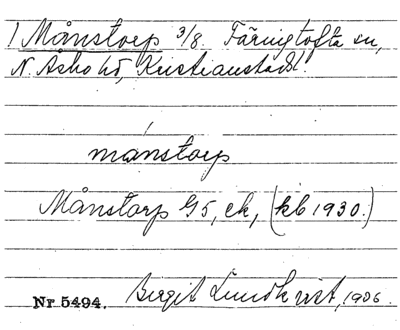 1 Månstorp 3/8. Färingtofta sn,
N. Åsbo hd, Kristianstads l.
mánstorp
Månstorp G5, ek, (kb 1930.)
Nr 5494. Birgit Lundkvist, 1936.